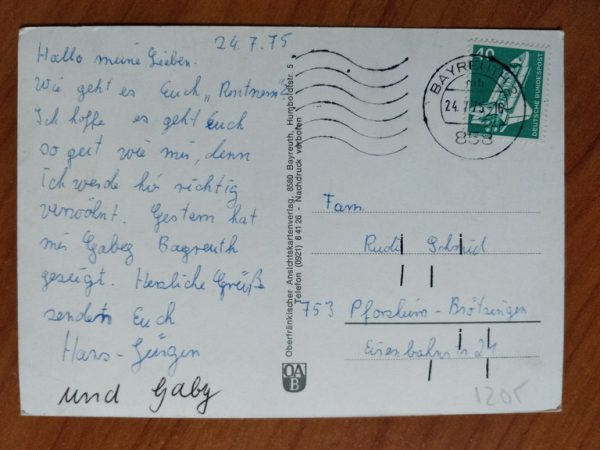 24.7.75
Hallo meine Lieben.
Wie geht es Euch „Rentnern"
Ich hoffe es geht Euch
so gut wie mir, denn
Ich werde hir richtig
verwöhnt. Gestern hat
mir Gabey Bayreuth
gezeigt. Herzliche Grüße
senden Euch
Hans-Jürgen
und Gaby
Oberfränkischer Ansichtskartenverlag, 8580 Bayreuth, Humboldtstr. 5
Telefon (0921) 6 41 26 - Nachdruck verboten
OA
B
40
DEUTSCHE BUNDESPOST
BAYREUTH
24.7.75-16
858
Fam.
Rudi Schmid
753 Pforzheim-Brötzingen
Eisenbahnstr 24
1205